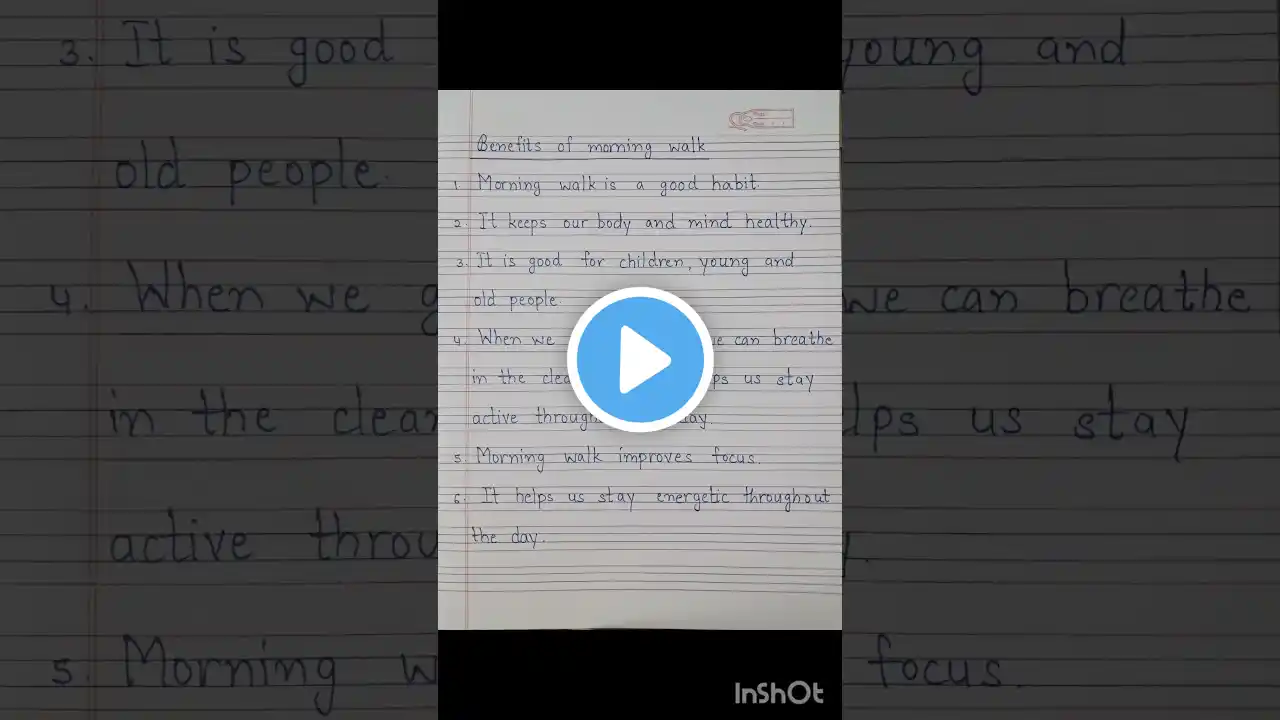 Benefits of morning walk
1. Morning walk is a good habit.
2. It keeps our body and mind healthy.
3. It is good for children, young and
old people.
4. When we we can breathe
in the us stay
active day.
5. Morning walk improves focus.
6. It helps us stay energetic throughout
the day.
InShOt